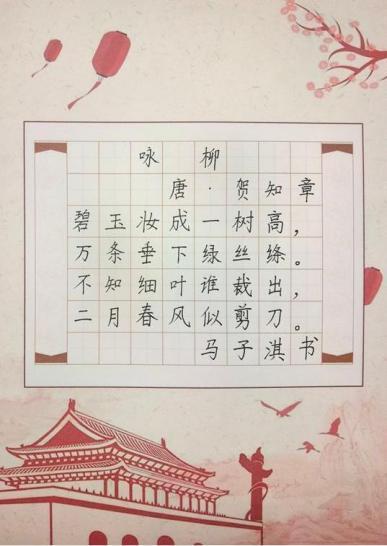 咏柳
唐·贺知章
碧玉妆成一树高，
万条垂下绿丝绦。
不知细叶谁裁出，
二月春风似剪刀。
马子淇书